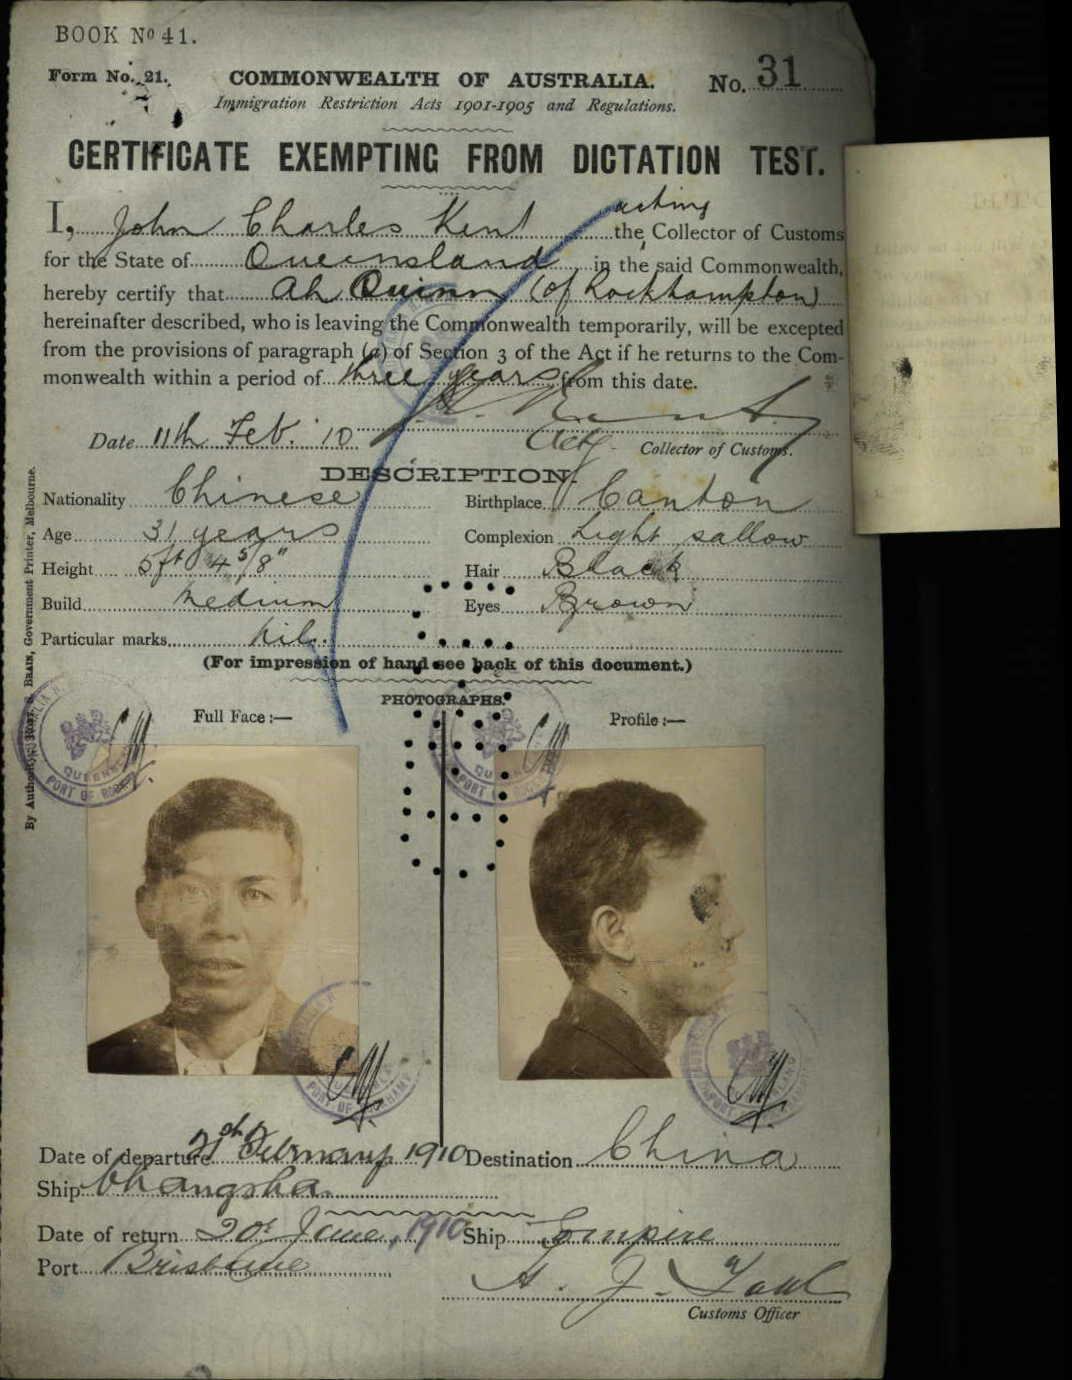 BOOK No 41.
Form No. 21.
COMMONWEALTH OF AUSTRALIA.
No. 31
Immigration Restriction Acts 1901-1905 and Regulations.
CERTIFICATE EXEMPTING FROM DICTATION TEST.
acting
I, John Charles Kent the Collector of Customs
for the State of Queensland in the said Commonwealth,
hereby certify that Ah Quinn (of Rockhampton)
hereinafter described, who is leaving the Commonwealth temporarily, will be excepted
from the provisions of paragraph (a) of Section 3 of the Act if he returns to the Com-
monwealth within a period of three years from this date.
Date 11th Feb. 10
Actg. Collector of Customs.
DESCRIPTION.
Nationality Chinese Birthplace Canton
Age 31 years Complexion Light sallow
Height 5ft 4 5/8" Hair Black
Build Medium Eyes Brown
Particular marks Nil.
(For impression of hand see back of this document.)
PHOTOGRAPHS.
Full Face:— Profile:—
Date of departure 21st February 1910 Destination China
Ship Changsha
Date of return 20th June, 1910 Ship Empire
Port Brisbane
Customs Officer
Government Printer, Melbourne.